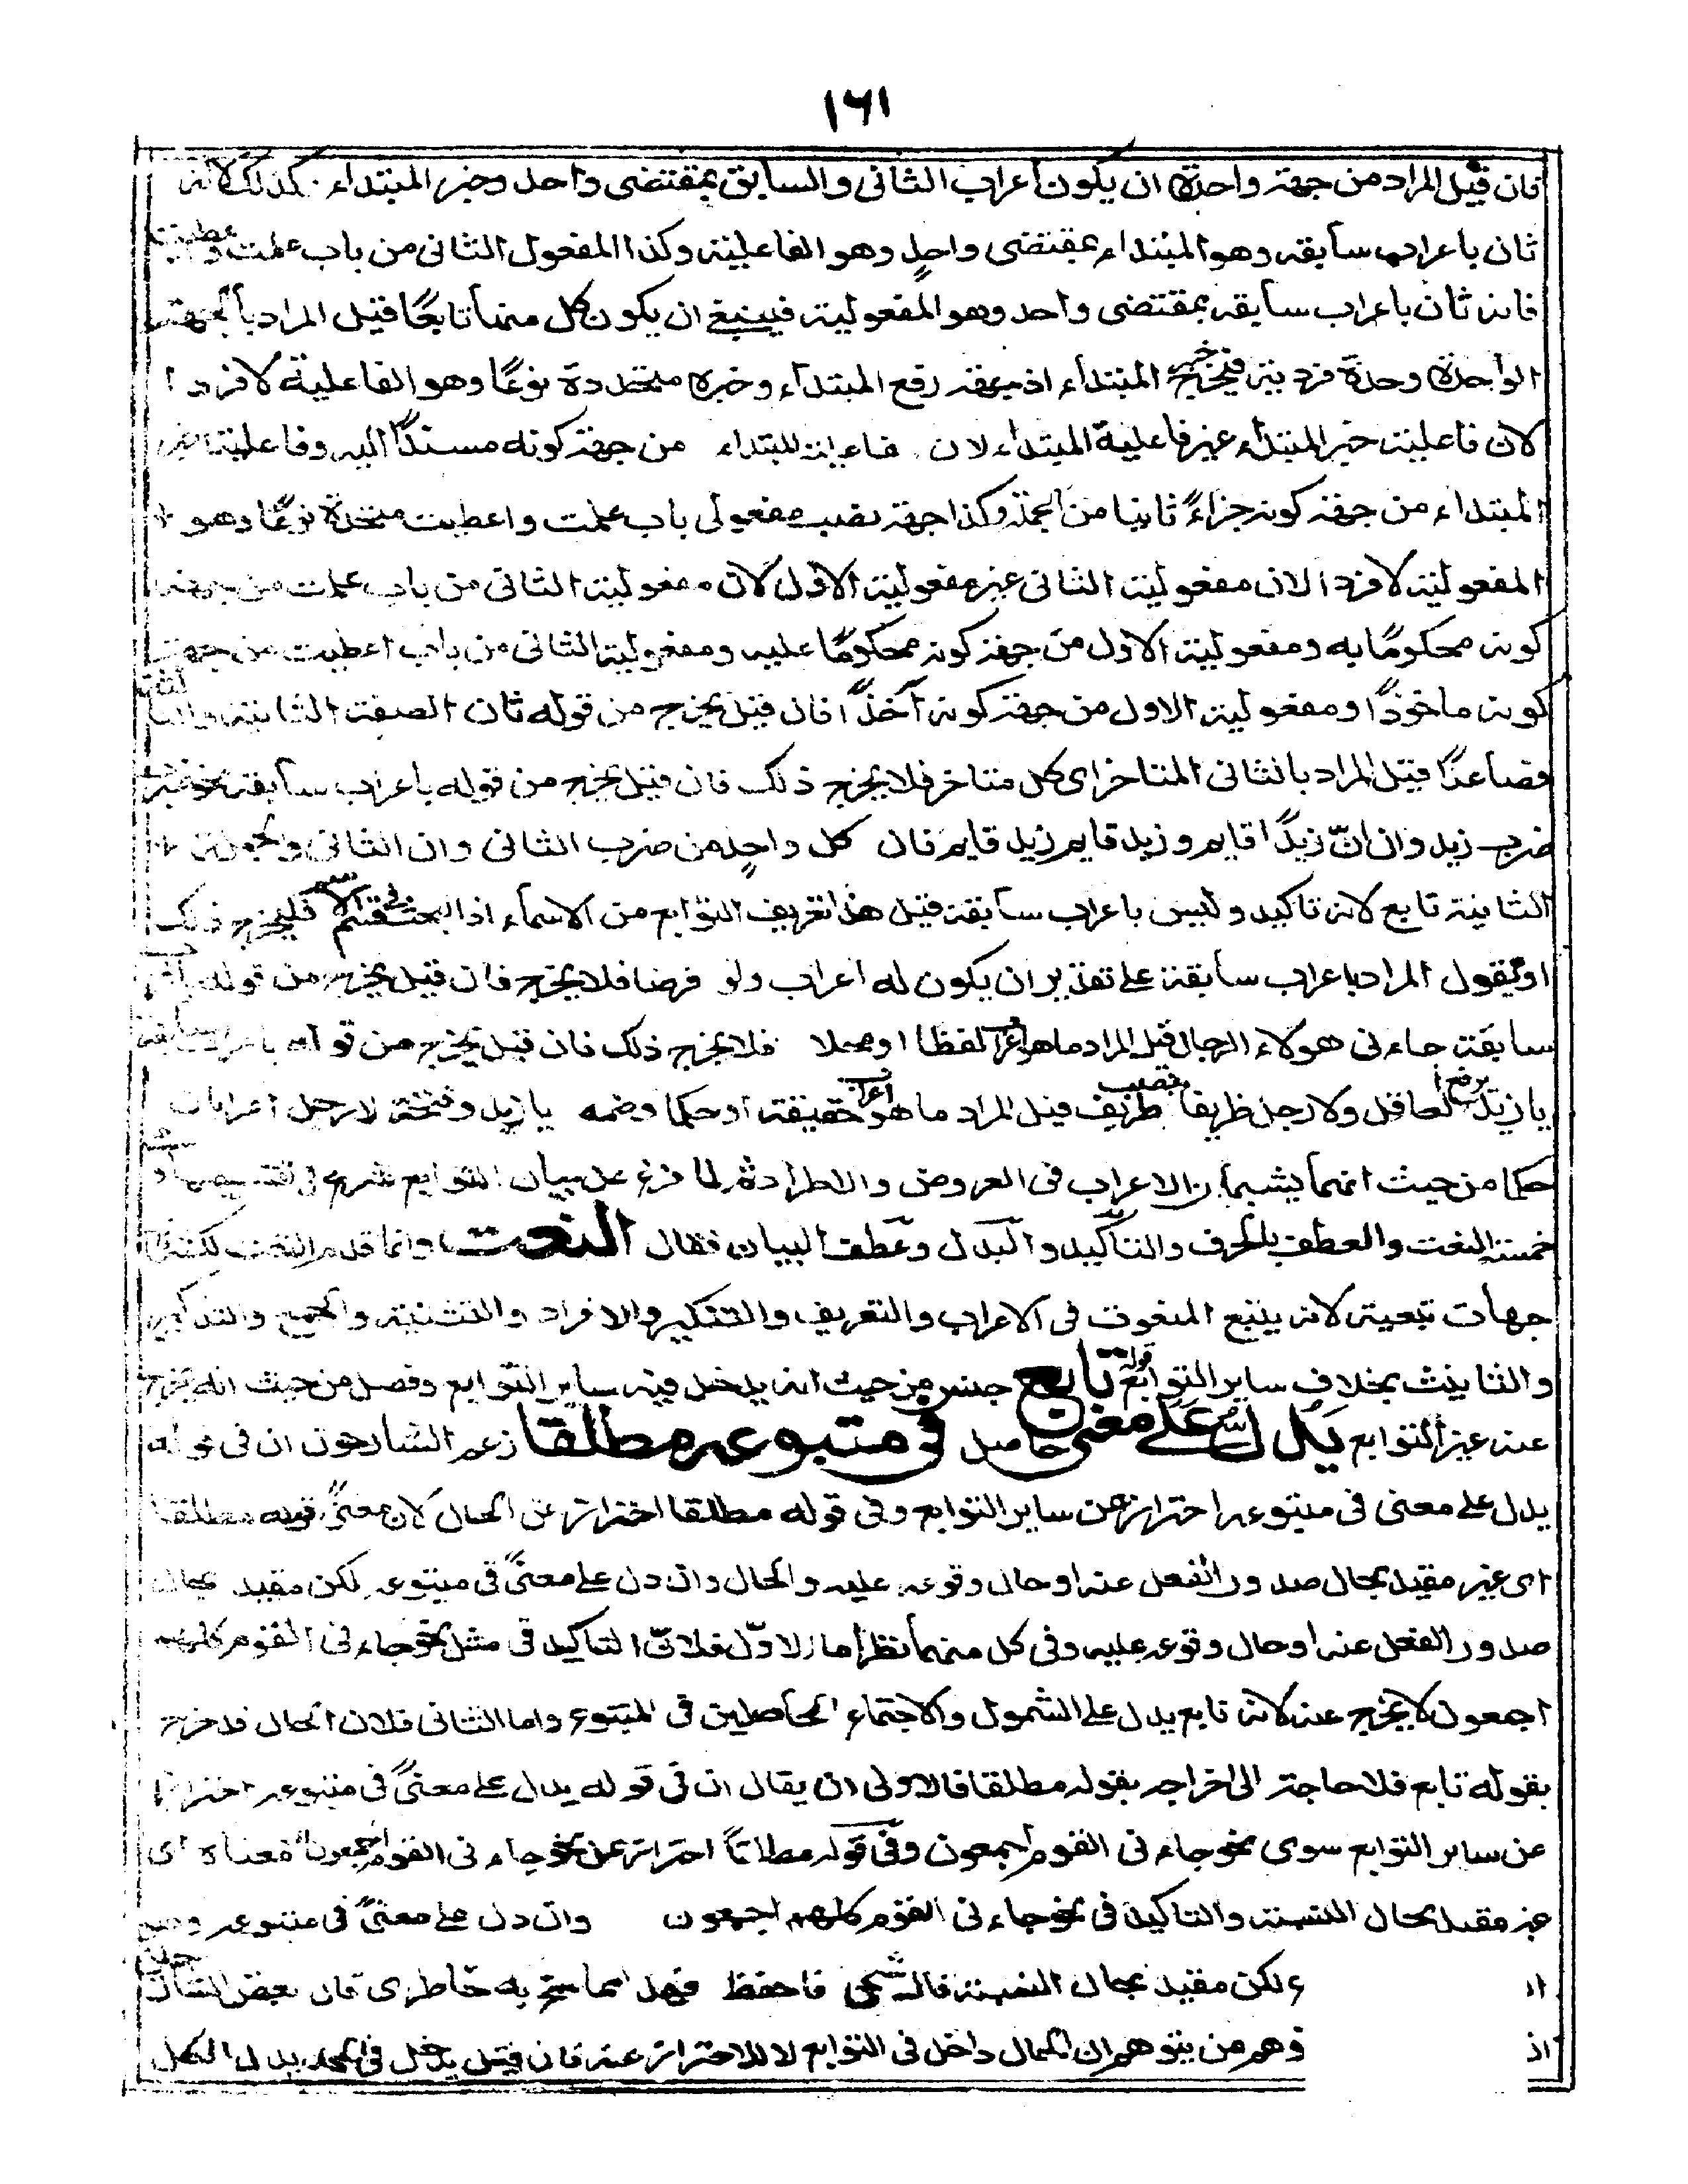 ١٦١
فان قيل المراد من جهة واحدة ان يكون اعراب الثانى والسابق بمقتضى واحد وخبر المبتداء كذلك لانه
ثان باعراب سابقه وهو المبتداء بمقتضى واحد وهو الفاعلية وكذا المفعول الثانى من باب علمت واعطيت
فانه ثان باعراب سابقه بمقتضى واحد وهو المفعولية فينبغى ان يكون كل منهما تابعًا قيل المراد بالجهة
الواحدة وحدة فردية فيخرج خبر المبتداء اذ جهة رفع المبتداء وخبره متحددة نوعًا وهو الفاعلية لا فردا
لان فاعلية خبر المبتداء غير فاعلية المبتداء لان فاعلية المبتداء من جهة كونه مسندًا اليه وفاعلية خبر
المبتداء من جهة كونه جزاءً ثانيا من الجملة وكذا جهة نصب مفعولى باب علمت واعطيت متحدة نوعًا وهو
المفعولية لا فردا لان مفعولية الثانى غير مفعولية الاول لان مفعولية الثانى من باب علمت من جهة
كونه محكومًا به ومفعولية الاول من جهة كونه محكومًا عليه ومفعولية الثانى من باب اعطيت من جهة
كونه ماخوذًا ومفعولية الاول من جهة كونه آخذًا فان قيل يخرج من قوله ثان الصفة الثانية والثالثة
فصاعدًا قيل المراد بالثانى المتاخر اى كل متاخر فلا يخرج ذلك فان قيل يخرج من قوله باعراب سابقه نحو ضرب
ضرب زيد وان انّ زيدًا قايم وزيد قايم زيد قايم فان كل واحدٍ من ضرب الثانى وان الثانى والجملة
الثانية تابع لانه تاكيد وليس باعراب سابقه قيل هذا تعريف التوابع من الاسماء اذ البحث فى قسم الاسم فليخرج ذلك
او نقول المراد باعراب سابقه على تقدير ان يكون له اعراب ولو فرضا فلا يخرج فان قيل يخرج من قوله باعراب
سابقه جاءنى هولاء الرجال قيل المراد ما هو اعراب لفظا او محلا فلا يخرج ذلك فان قيل يخرج من قوله باعراب سابقه
يا زيد العاقل برفع ولا رجل ظريفا بنصب ظريف قيل المراد ما هو اعراب حقيقة او حكما وضمه يا زيد وفتحة لا رجل اعرابان
حكما من حيث انهما يشبهان الاعراب فى العروض والاطراد ثم لما فرغ عن بيان التوابع شرع فى تقسيمها وهى
خمسة النعت والعطف بالحرف والتاكيد والبدل وعطف البيان فقال النعت وانما قدم النعت لكثرة
جهات تبعيته لانه يتبع المنعوت فى الاعراب والتعريف والتنكير والافراد والتثنية والجمع والتذكير
والتانيث بخلاف ساير التوابع قوله تابع جنس من حيث انه يدخل فيه ساير التوابع وفصل من حيث انه يخرج
عنه غير التوابع يدل على معنى حاصل فى متبوعه مطلقا زعم الشارحون ان فى قوله
يدل على معنى فى متبوعه احتراز عن ساير التوابع وفى قوله مطلقا احتراز عن الحال لان معنى قوله مطلقا
اى غير مقيد بحال صدور الفعل عنه او حال وقوعه عليه والحال وان دل على معنىً فى متبوعه لكن مقيد بحال
صدور الفعل عنه او حال وقوعه عليه وفى كل منهما نظر اما الاوّل فلانّ التاكيد فى مثل نحو جاءنى القوم كلهم
اجمعون لا يخرج عنه لانه تابع يدل على الشمول والاجتماع الحاصلين فى المتبوع واما الثانى فلان الحال قد خرج
بقوله تابع فلا حاجة الى اخراجه بقوله مطلقا فالاولى ان يقال ان فى قوله يدل على معنىً فى متبوعه احترازا
عن ساير التوابع سوى نحو جاءنى القوم اجمعون وفى قوله مطلقاً احتراز عن نحو جاءنى القوم اجمعون لان معناه اى
غير مقيد بحال النسبة والتاكيد فى نحو جاءنى القوم كلهم اجمعون وان دل على معنىً فى متبوعه
ولكن مقيد بحال النسبة فاحفظ فهذا مما سنح به خاطرى قال بعض
اذ وهم من يتوهم ان الحال داخل فى التوابع لا للاحتراز عنه فان قيل يدخل فى الحد بدل الكل